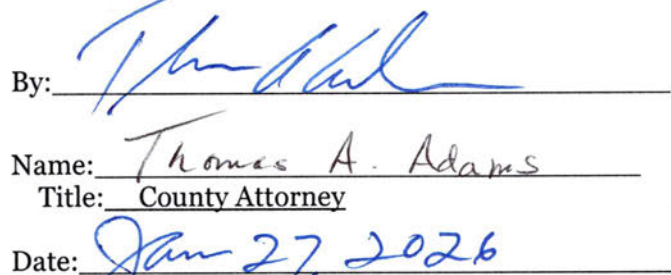 By:
Name: Thomas A. Adams
Title: County Attorney
Date: Jan 27, 2026